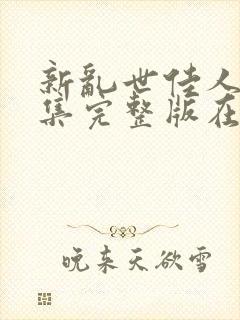 新乱世佳人
集完整版在
晚来天欲雪